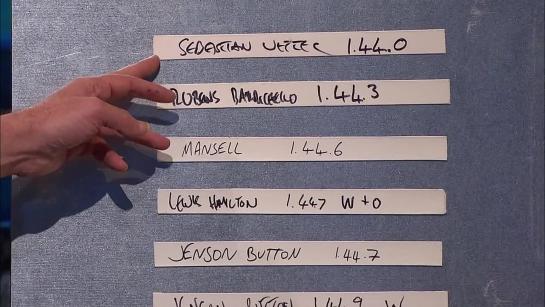 SEBASTIAN VETTEL 1.44.0
RUBENS BARRICHELLO 1.44.3
MANSELL 1.44.6
LEWIS HAMILTON 1.447 W+O
JENSON BUTTON 1.44.7
JENSON BUTTON 1.44.9 W